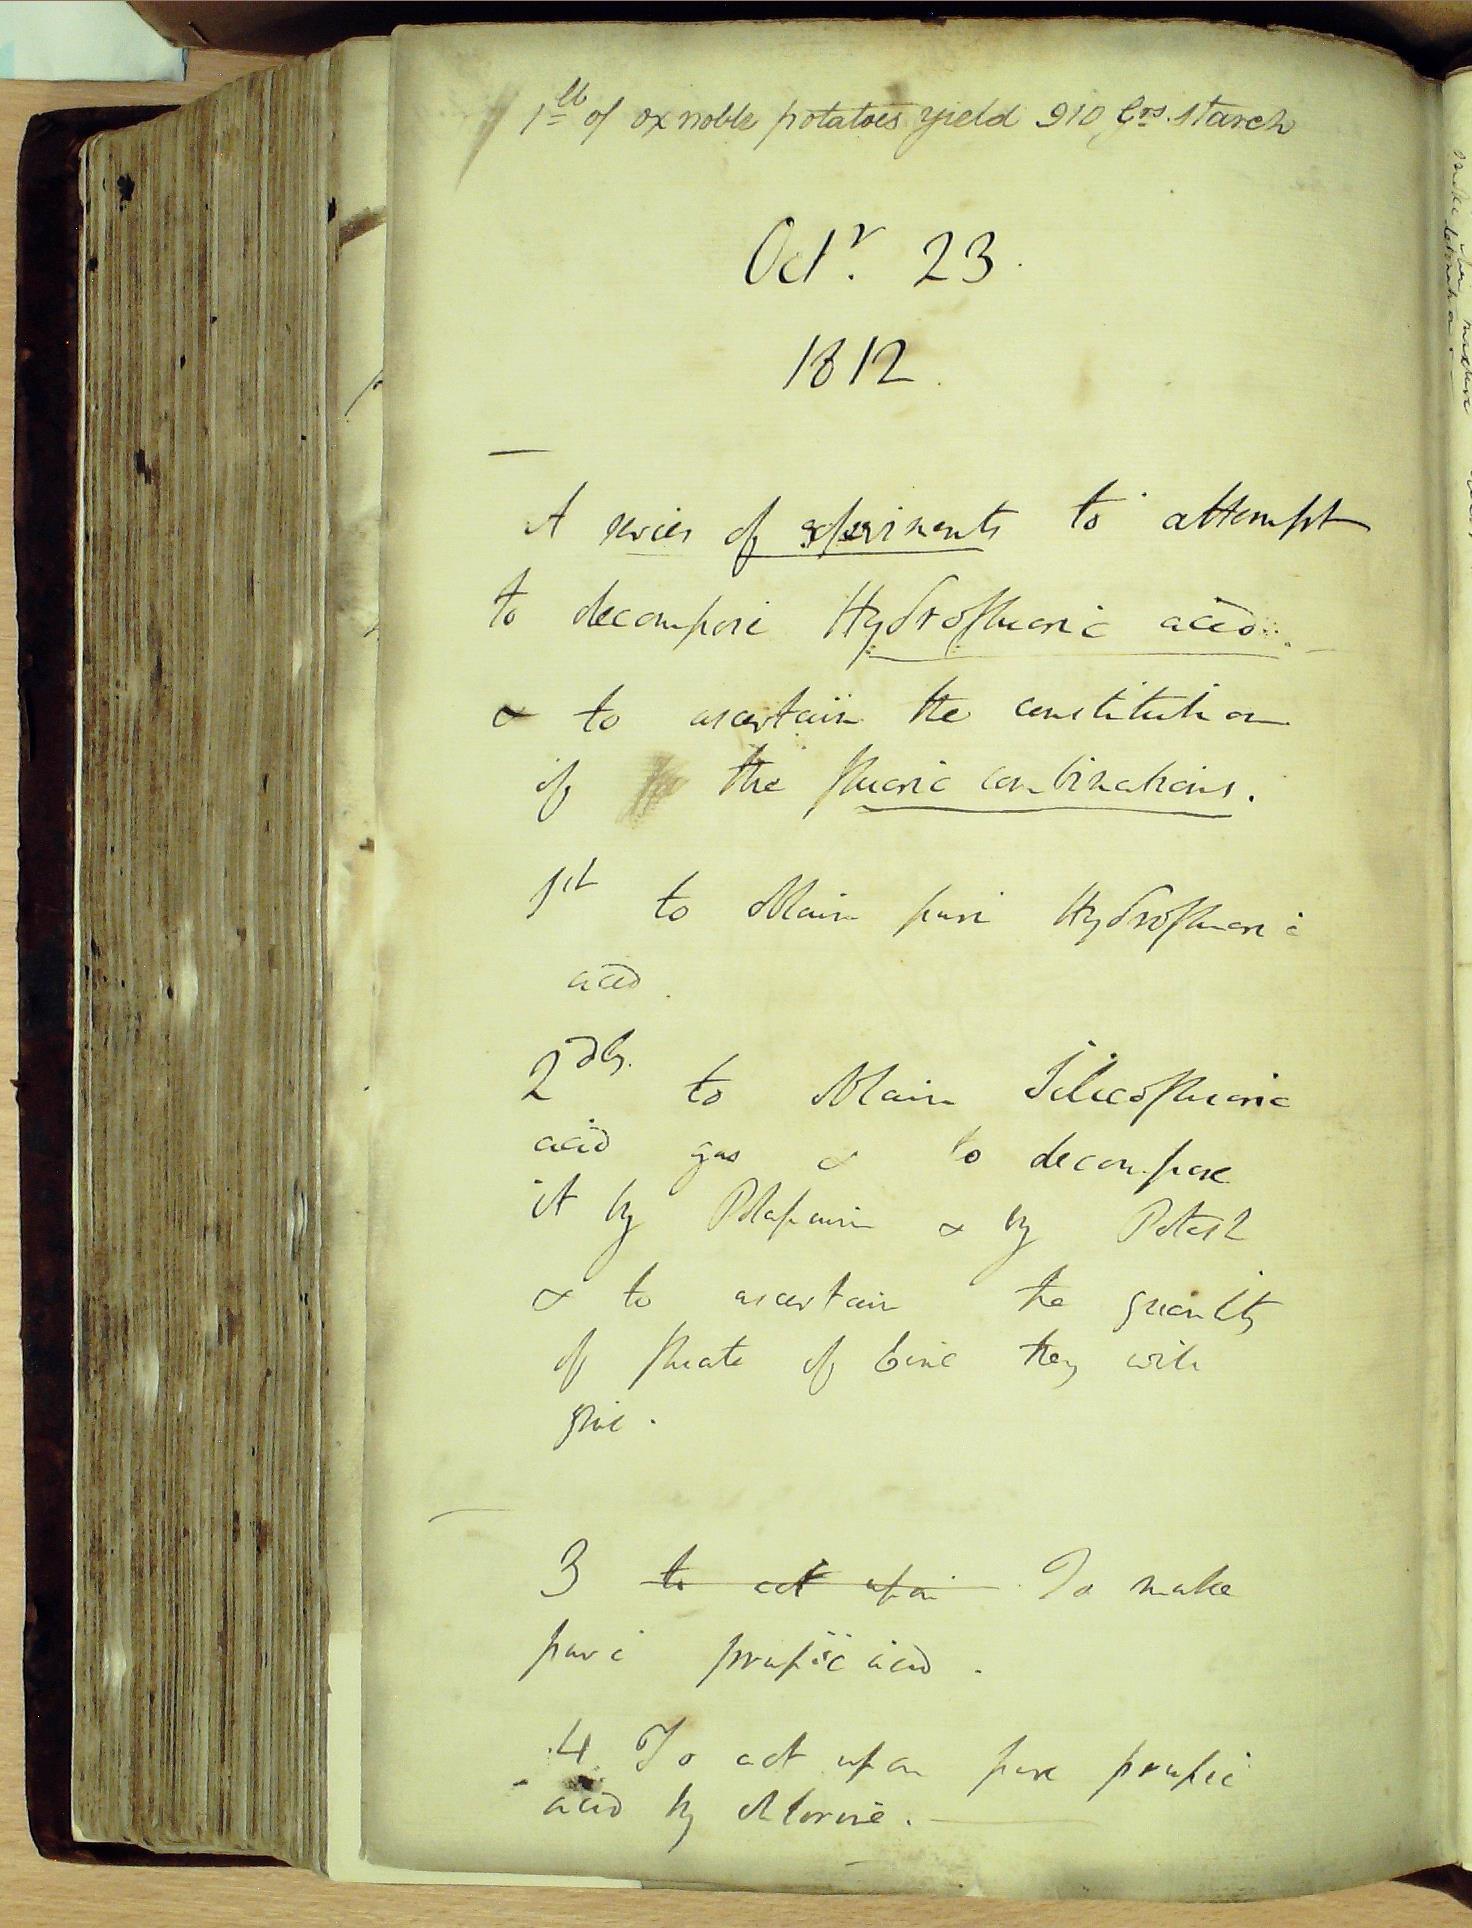 1lb of ox noble potatoes yield 910 Grs. starch
Octr. 23.
1812.
A series of experiments to attempt
to decompose Hydrofluoric acid.
& to ascertain the constitution
of the fluoric combinations.
1st to obtain pure Hydrofluoric
acid.
2dly. to obtain Silicofluoric
acid gas & to decompose
it by Potassium & by Potash
& to ascertain the quantity
of fluate of Lime they will
give.
3 to act upon To make
pure prussic acid.
4 To act upon pure prussic
acid by chlorine.